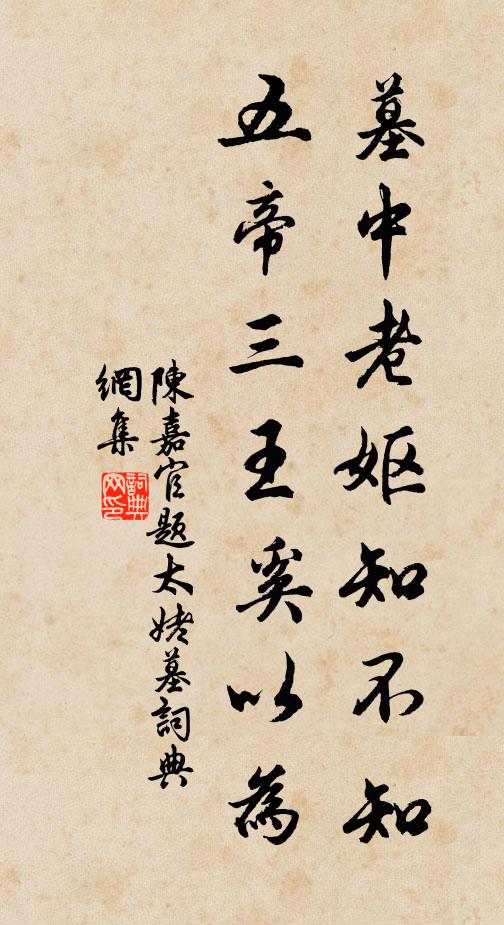 墓中老妪知不知
五帝三王奚以為
陳嘉官題太姥墓詞典
網集
詞典
网印